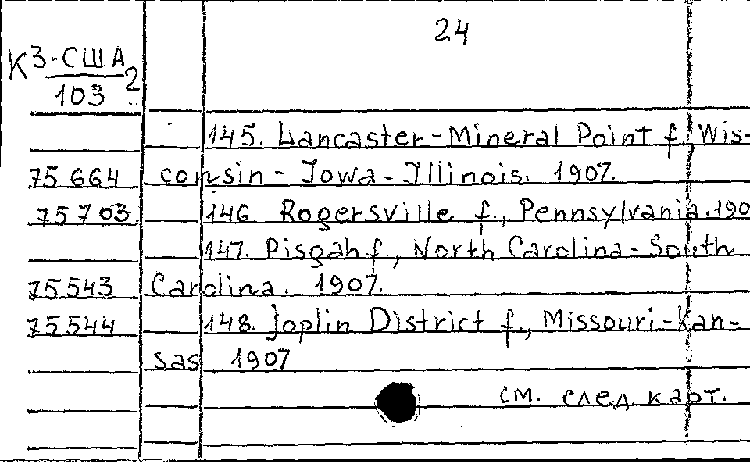 24
К3-США 2
103
145. Lancaster-Mineral Point f, Wis-
75664 consin - Iowa - Illinois. 1907.
75703 146. Rogersville f., Pennsylvania. 190
147. Pisgah f., North Carolina-South
75543 Carolina. 1907.
75544 148. Joplin District f., Missouri-Kan-
sas 1907
см. след. карт.